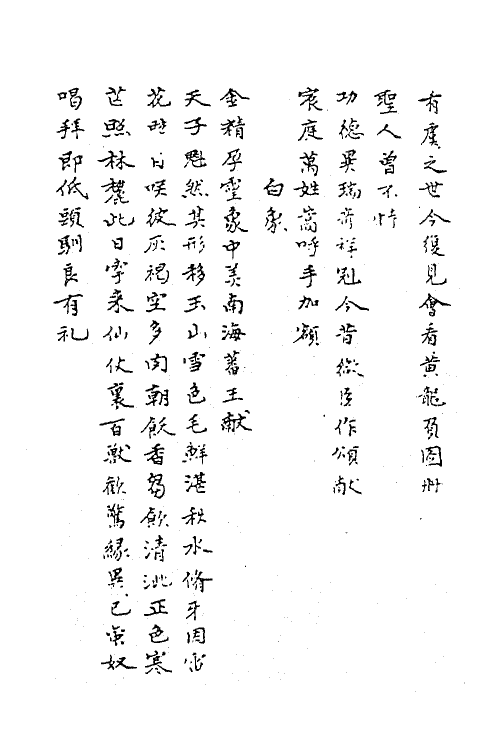 有虞之世今復見會看黃龍負圖卅
聖人曾不恃
功德異瑞奇祥冠今昔微臣作頌献
宸庭萬姓嵩呼手加額
白象
金精孕靈象中美南海蕃王献
天子魁然其形移玉山雪色毛鮮湛秋水脩牙因
花照日咲彼灰褐空多肉朝飫香芻飲清泚正色寒
芒照林麓此日牢来仙仗裏百獸歡驚緣異已蛮奴
喝拜即低頭馴良有礼